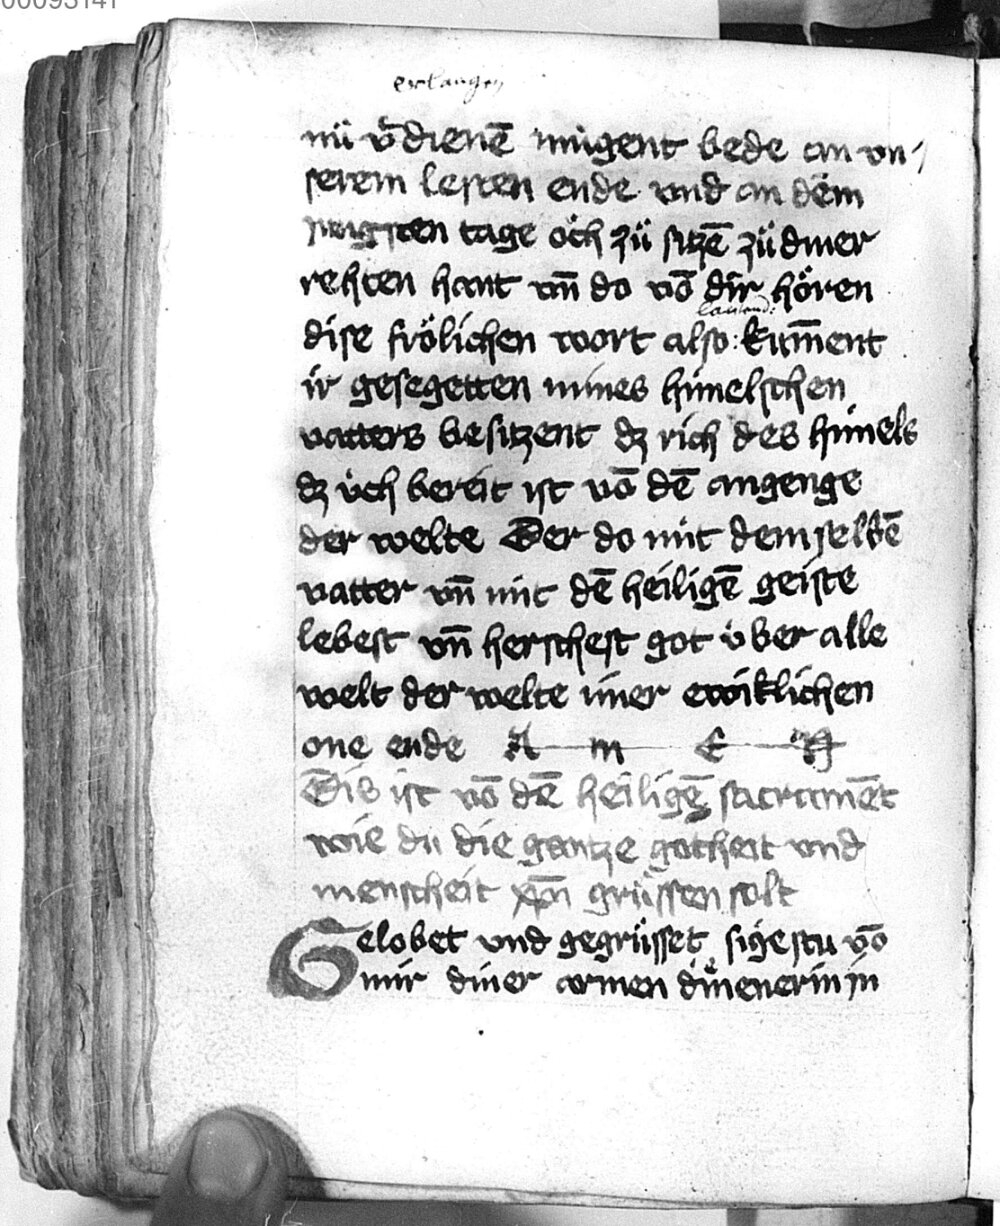 00093141
erlangen
nü v̄dienē mügent bede an vn⸗
serem lesten ende vnd an dem
iungsten tage öch zü sitzē zü diner
rehten hant vn̄ do vō dir hören
dise frölichen wort also: kum̄ent
ir gesegetten mines himelschen
vatters besitzent dz rich des himels
dz üch bereit ist vō dē angenge
der welte Der do mit dem selbē
vatter vn̄ mit dē heiligē geiste
lebest vn̄ herschest got über alle
welt der welte imer ewiklichen
one ende A m E N
Dis ist vō dē heiligē sacramēt
wie du die gantze gotheit vnd
menscheit xp̄i grüssen solt
Gelobet vnd gegrüsset sigestu vō
mir diner armen dienenerin in